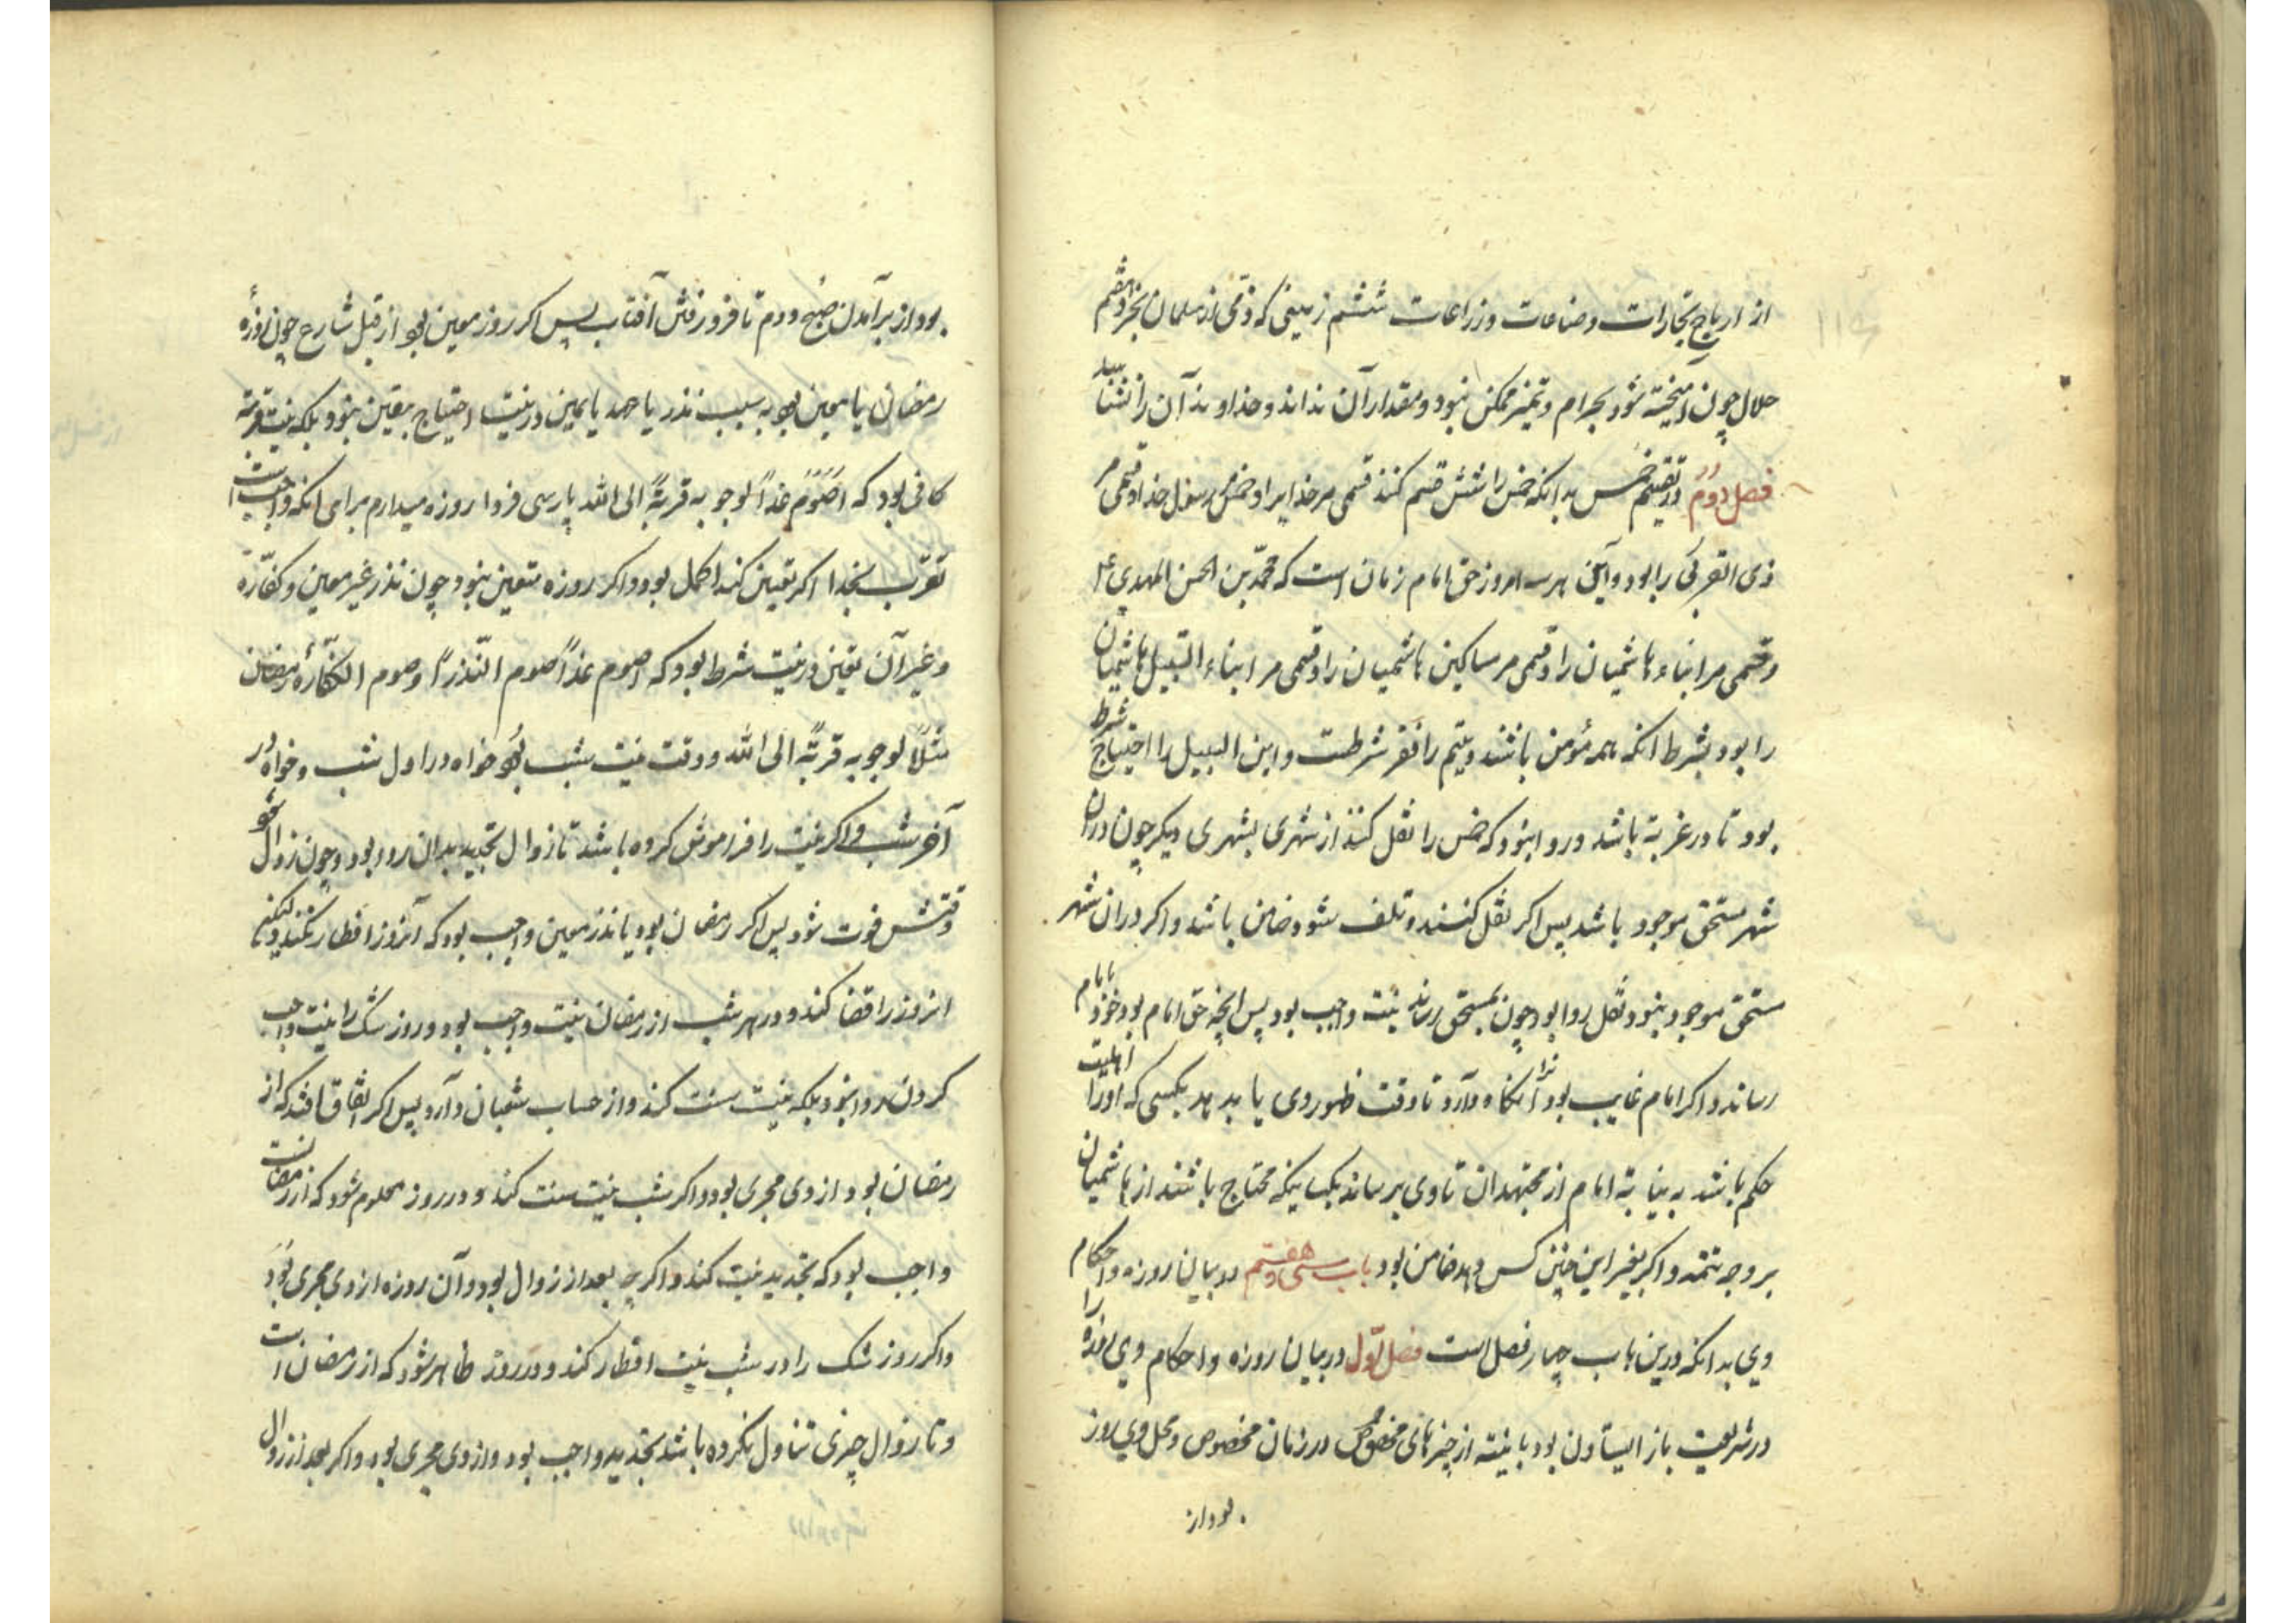 از ارباح تجارات و صناعات و زراعات ششم زمینی که ذمّی از مسلمان بخرد هفتم
حلال چون آمیخته شود بحرام و تمیز ممکن نبود و مقدار آن نداند و خداوند آن را نشناسد
فصل دوم در تقسیم خمس بدانکه خمس را شش قسم کنند قسمی مر خدایرا و قسمی رسول خدا و قسمی مر
ذی القربی را بود و این هر سه امروز حق امام زمان است که محمّد بن الحسن المهدی ع
و قسمی مر ایتام هاشمیان را و قسمی مر مساکین هاشمیان را و قسمی مر ابناء السّبیل هاشمیان
را بود بشرط انکه همه مؤمن باشند و یتیم را فقر شرطست و ابن السبیل را احتیاج شرط
بود تا در غربة باشد و روا نبود که خمس را نقل کنند از شهری بشهری دیگر چون دران
شهر مستحق موجود باشد پس اکر نقل کنند و تلف شود ضامن باشد و اکر دران شهر
مستحق موجود نبود نقل روا بود چون بمستحق رساند نیّت واجب بود پس انچه حق امام بود خود بامام
رساند و اکر امام غایب بود آنرا نگاه دارد تا وقت ظهور وی یا بدهد بکسی که او را اهلیت
حکم باشد به نیابة امام از مجتهدان تا وی برساند بکسانیکه محتاج باشند از هاشمیان
بر وجه تتمّه و اکر بغیر این چنین کس دهد ضامن بود باب سی و هفتم در بیان روزه و احکام
وی بدانکه درین باب چهار فصل است فصل اوّل در بیان روزه و احکام وی روزه را
در شریعت باز ایستادن بود با نیّت از چیزهای مخصوص در زمان مخصوص و محل وی روز
بود از
بود از برآمدن صبح دوم تا فرو رفتن آفتاب پس اکر روز معین بود از قبل شارع چون روزهٔ
رمضان یا معین بود به سبب نذر یا عهد یا یمین در نیت احتیاج بتعین نبود بلکه نیت قربة
کافی بود که اصُومُ غداً لوجوبه قربةً الی الله پارسی فردا روزه میدارم برای انکه واجبست
تقرّب بخدا اکر تعیین کند اکمل بود و اکر روزه متعین نبود چون نذر غیر معین و کفّاره
و غیر آن تعین در نیت شرط بود که اصوم غداً صوم النّذر او صوم الکفّارة رمضان
مثلاً لوجوبه قربةً الی الله و وقت نیت شب بود خواه در اول شب و خواه در
آخر شب و اکر نیت را فراموش کرده باشد تا زوال تجدید بدان روا بود و چون زوال شود
وقتش فوت شود پس اکر رمضان بود یا نذر معین واجب بود که آنروز افطار نکند و لیکن
انروز را قضا کند و در هر شب از رمضان نیت واجب بود و روز شک را نیت واجب
کردن روا نبود بلکه نیت سنت کند و از حساب شعبان دارد پس اکر اتّفاق افتد که از
رمضان بود از وی مجری بود و اکر شب نیت سنت کند و در روز معلوم شود که از رمضانست
واجب بود که تجدید نیت کند و اکر چه بعد از زوال بود و آن روزه از وی مجری بود
و اکر روز شک را در شب نیت افطار کند و در روز ظاهر شود که از رمضان است
و تا زوال چیزی تناول نکرده باشد تجدید واجب بود و از وی مجری بود و اکر بعد از زوال